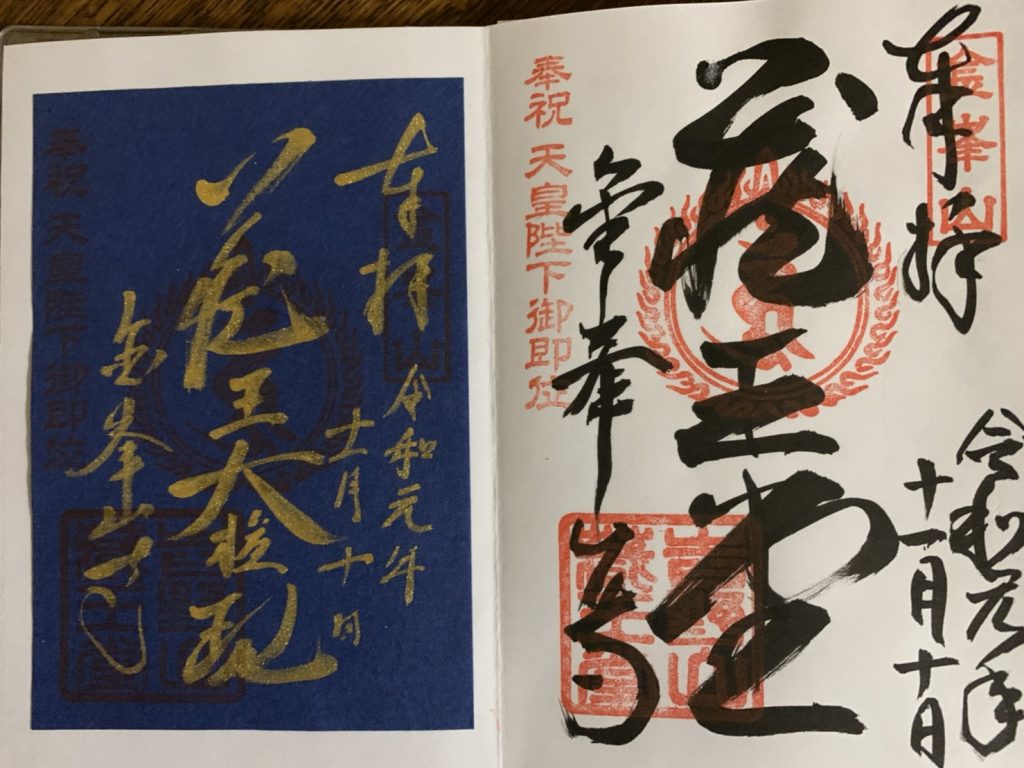 奉拝
金峯山
令和元年
十一月十日
蔵王堂
奉祝 天皇陛下御即位
金峯山寺
奉拝
金峯山
令和元年
十一月十日
蔵王大権現
金峯山寺
奉祝 天皇陛下御即位